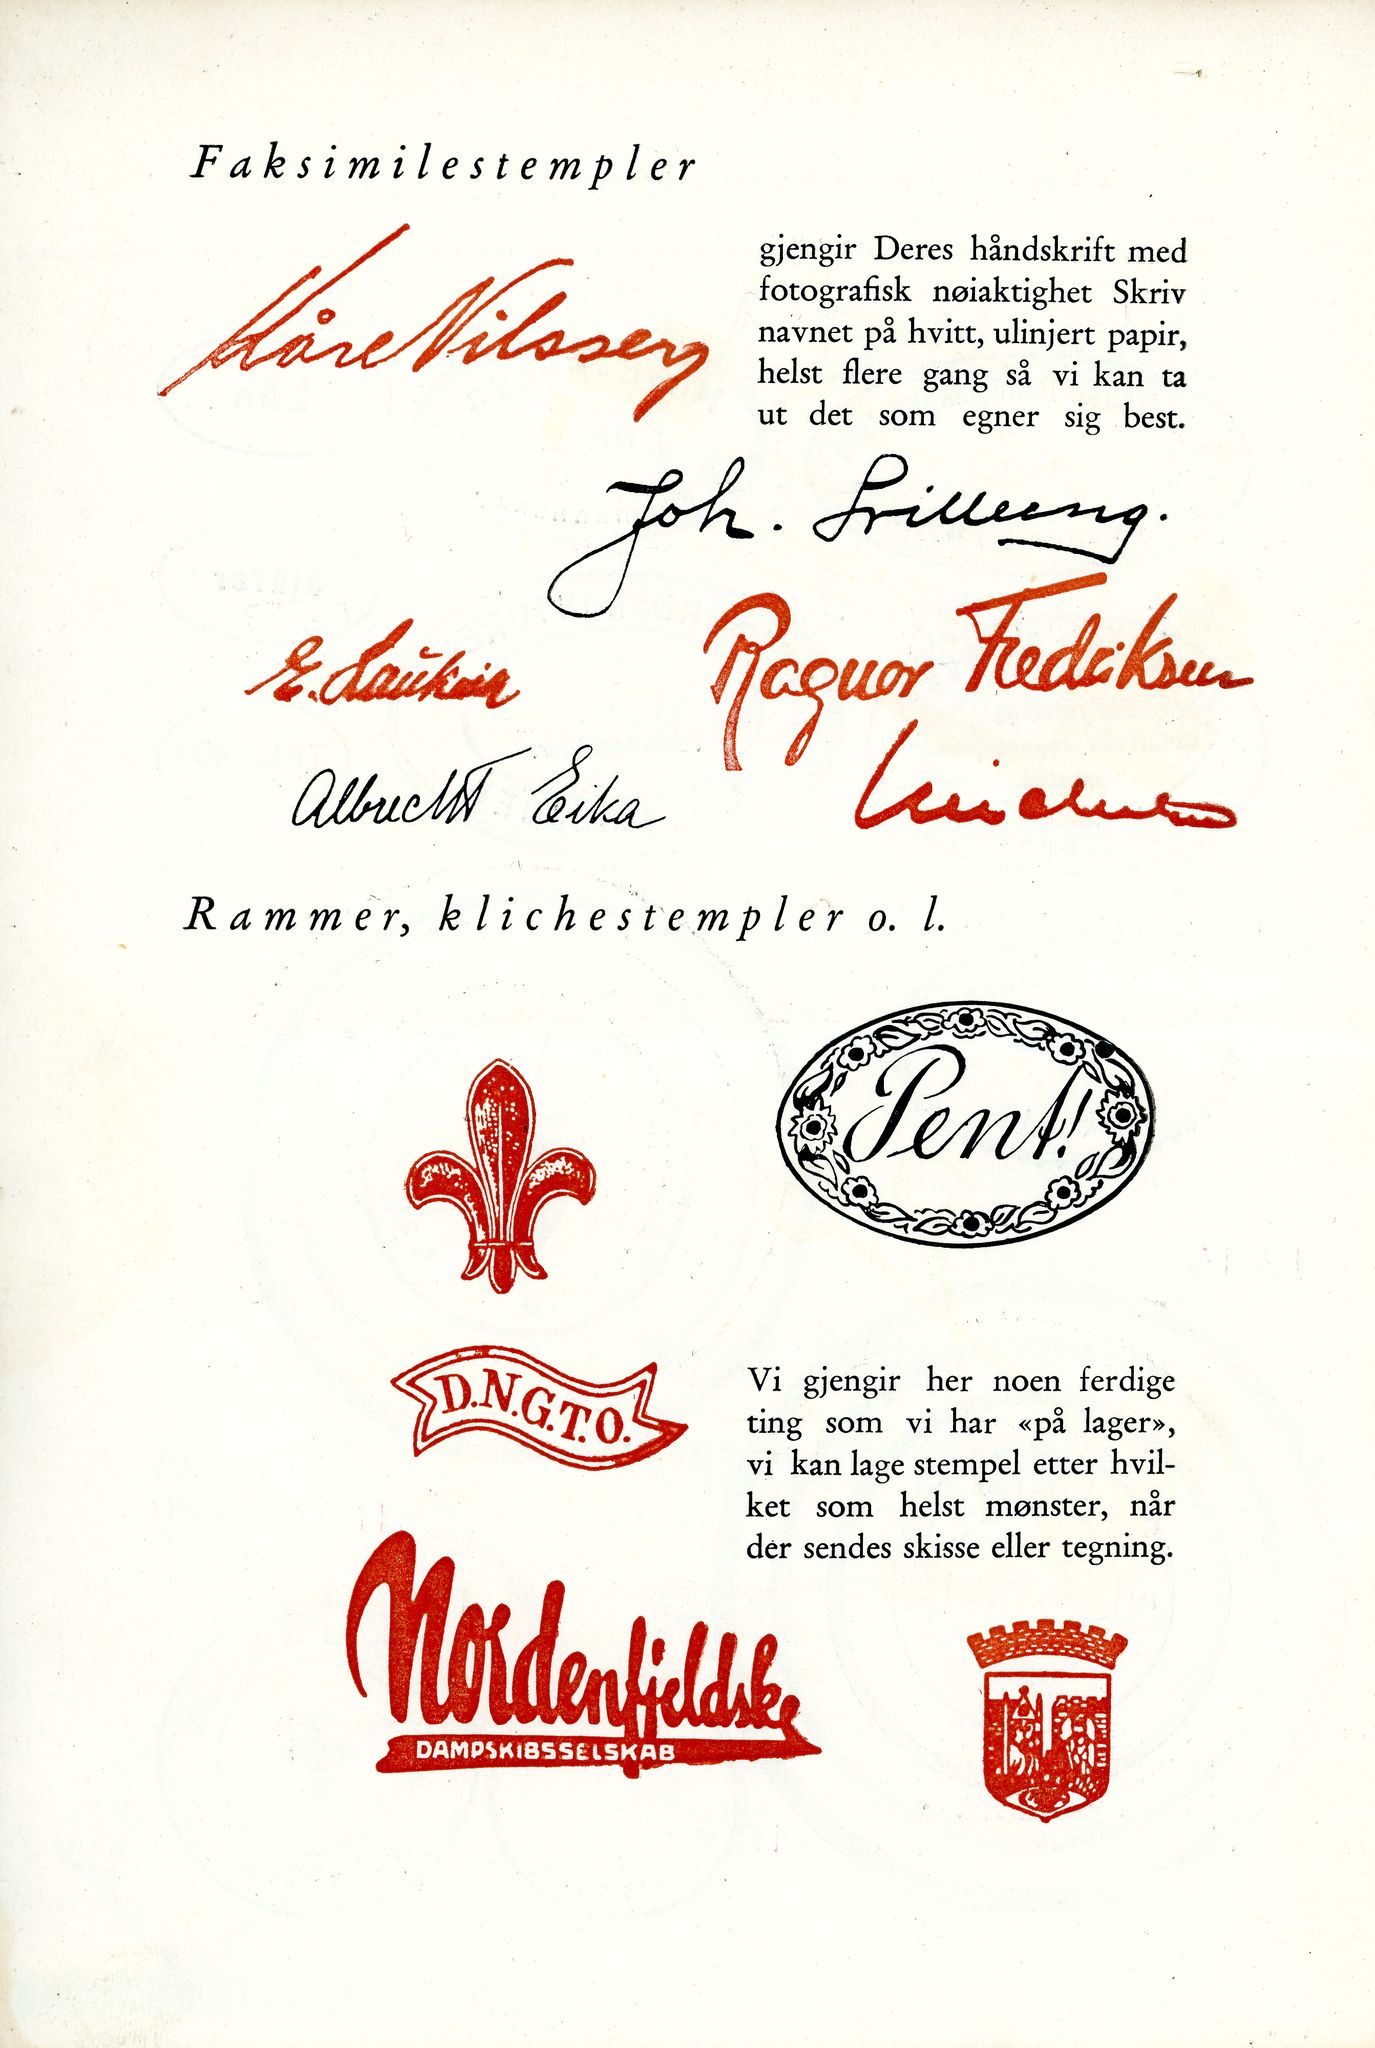 Faksimilestempler
Kåre Nilssen
gjengir Deres håndskrift med
fotografisk nøiaktighet Skriv
navnet på hvitt, ulinjert papir,
helst flere gang så vi kan ta
ut det som egner sig best.
Joh.
E.
Ragnar Fredriksen
Albrecht Eika
Rammer, klichestempler o. l.
Pent!
D.N.G.T.O.
Vi gjengir her noen ferdige
ting som vi har «på lager»,
vi kan lage stempel etter hvil-
ket som helst mønster, når
der sendes skisse eller tegning.
Nordenfjeldske
DAMPSKIBSSELSKAB